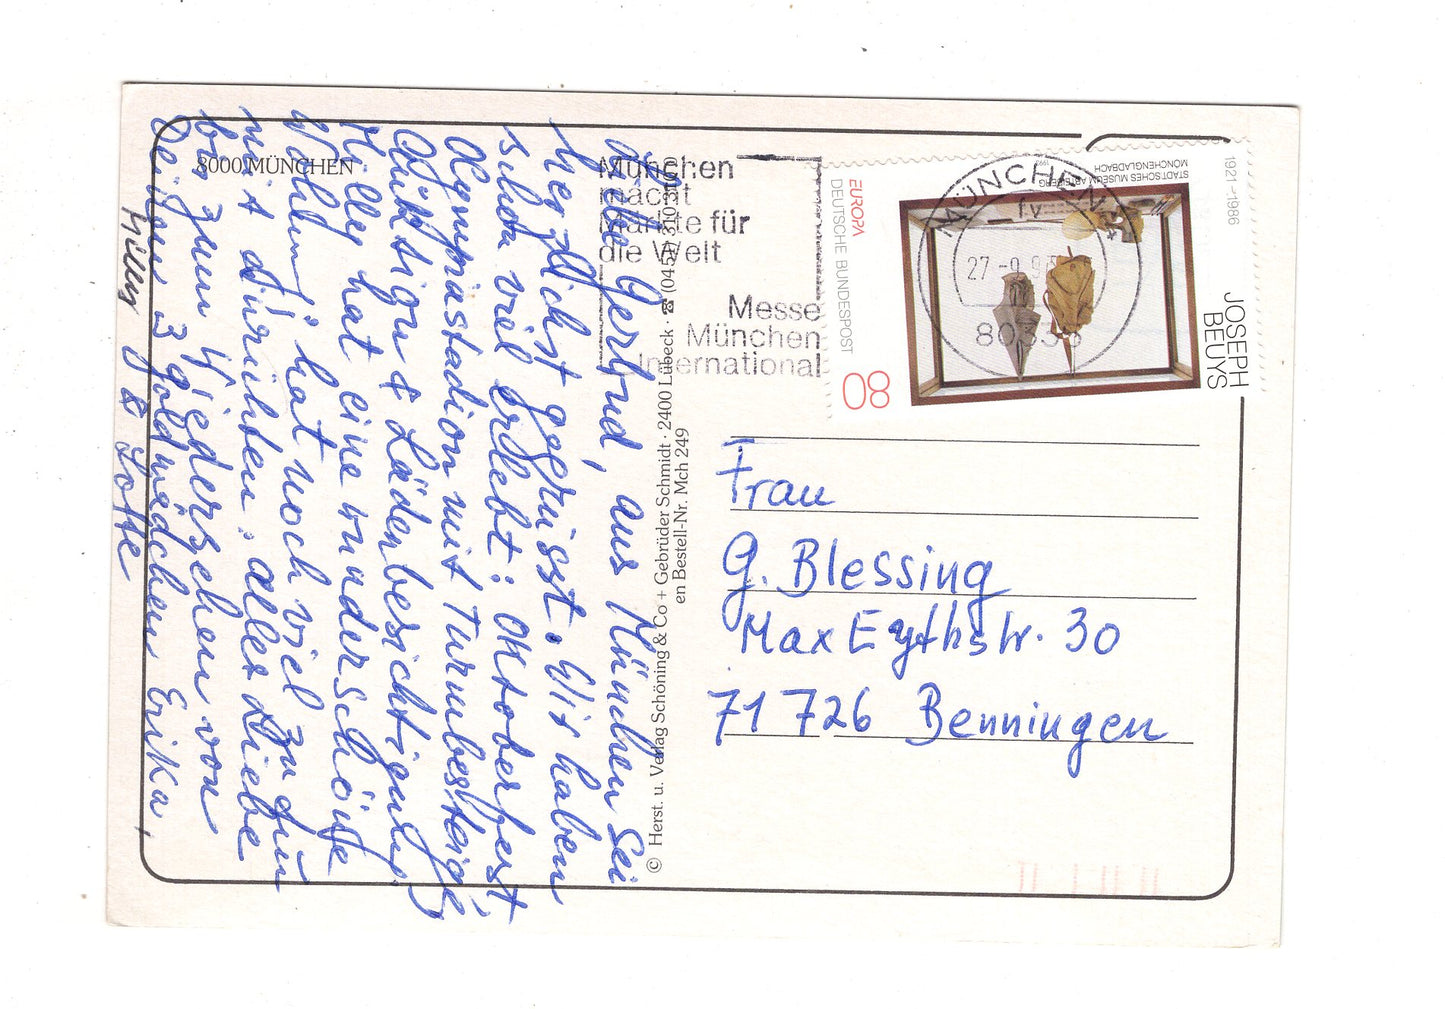 8000 MÜNCHEN
Liebe Gertrud, aus München sei
herzlichst gegrüsst. Wir haben
schon viel erlebt: Oktoberfest
Olympiastadion mit Turmbesteig.
& Läden besichtigung
Hilley hat eine wunderschöne
hat noch viel
mit dir. alles Liebe
bis zum Wiedersehen von
Deinen 3 goldmädchen Erika,
Hilley & Lotte
© Herst. u. Verlag Schöning & Co + Gebrüder Schmidt · 2400 Lübeck · ☎ (0451)
en Bestell-Nr. Mch 249
München
macht
Märkte für
die Welt
Messe
München
International
MÜNCHEN
fv
27-9.93
80333
EUROPA
DEUTSCHE BUNDESPOST
80
STÄDTISCHES MUSEUM ABTEIBERG
MÖNCHENGLADBACH
1921-1986
JOSEPH
BEUYS
Frau
G. Blessing
Max Eythstr. 30
71 726 Benningen